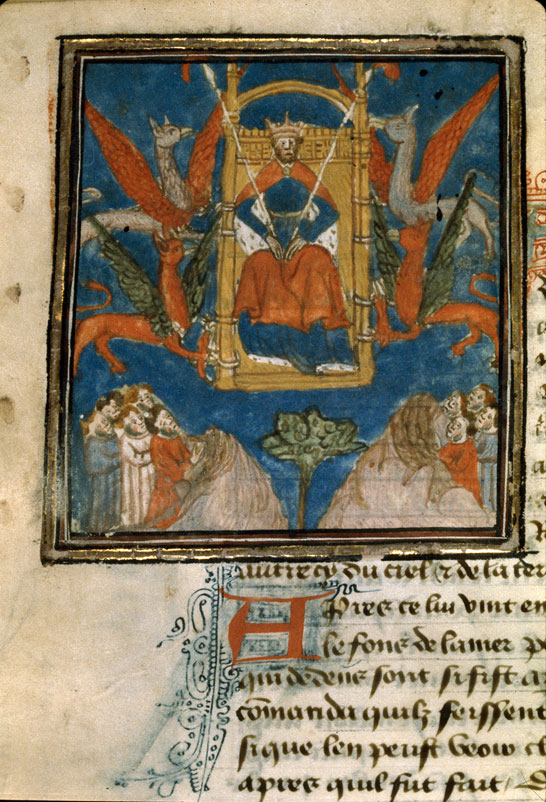 autre cy du ciel et de la ter
Apres ce luy vint en
le fons de la mer p
qui dedens sont si fist a
cōmanda quilz feissent
si que len peust veoir cl
apres quil fut fait